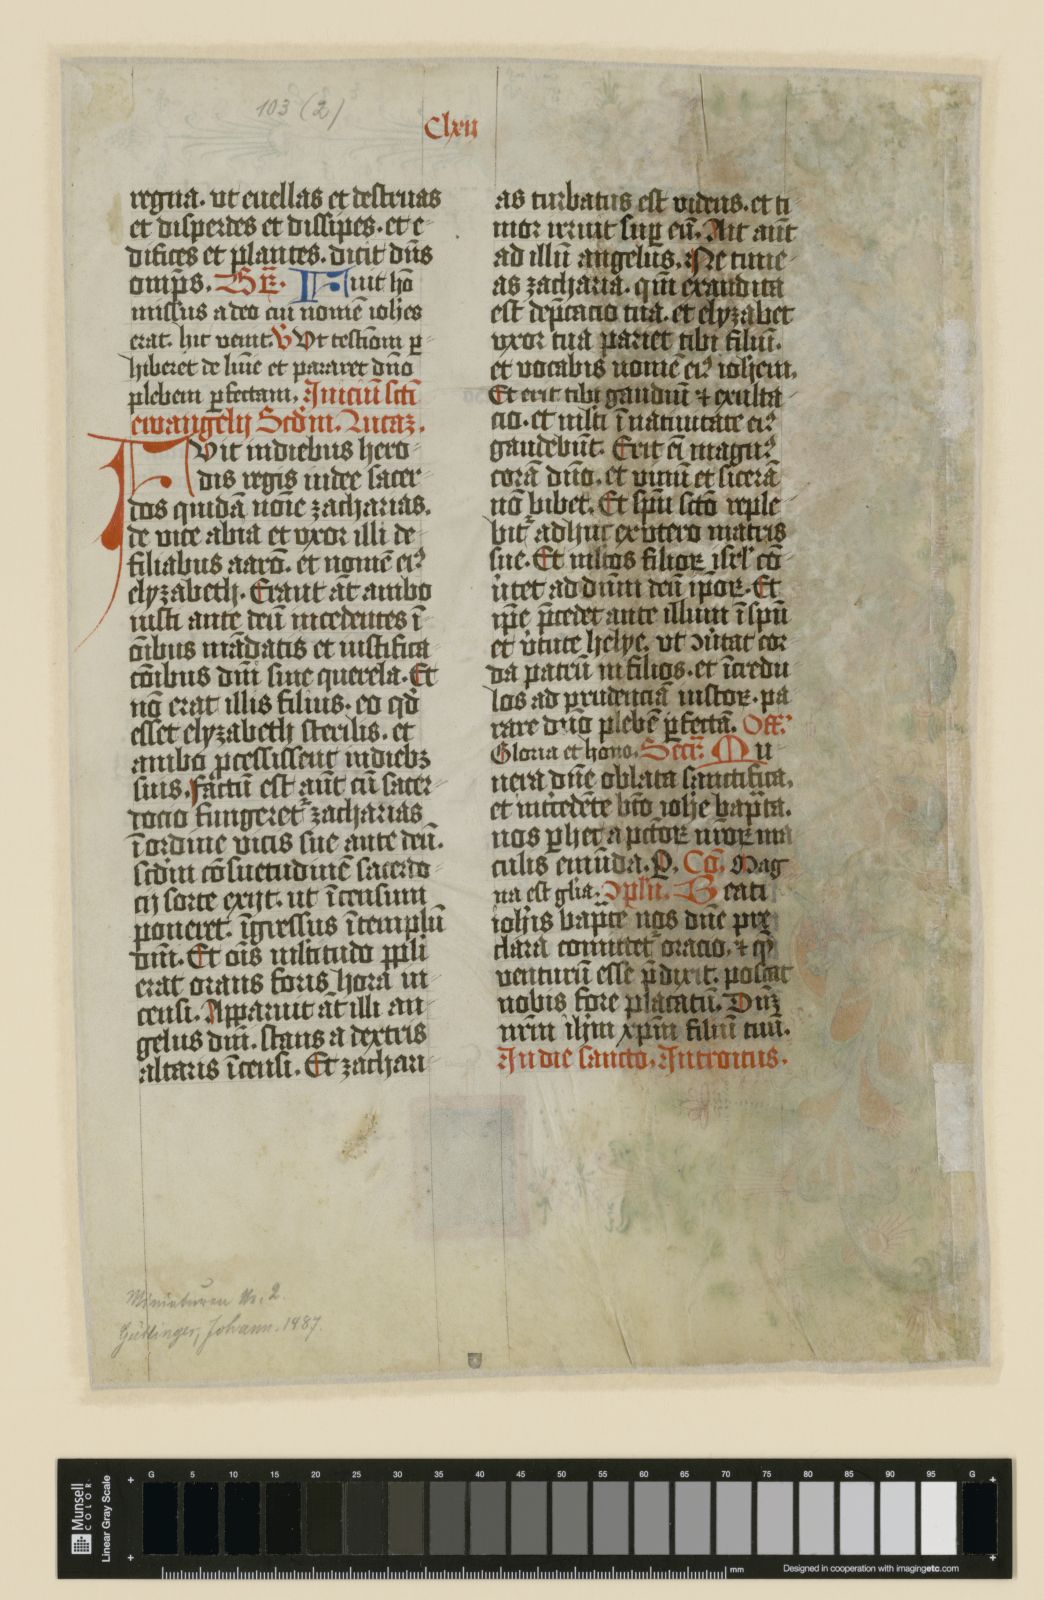 103 (2)
Clxii
regna. vt euellas et destruas
et disperdes et dissipes. et e
difices et plantes. dicit dn̄s
omp̄s. Gr̄. Fuit hō
missus a deo cui nomē ioh̄es
erat. hic venit. V Vt testiōm p̱
hiberet de lūie et pararet dn̄o
plebem p̱fectam. Iniciū scti
ewangelij Scd̄m. Lucaꝫ.
FVit in diebus hero
dis regis iudee sacer
dos quidā noīe zacharias.
de vice abia et vxor illi de
filiabus aarō. et nomē eiꝰ
elyzabeth. Erant āt ambo
iusti ante deū incedentes ī
oībus mādatis et iustifica
cōibus dn̄i sine querela. Et
nō erat illis filius. eo qd̄
esset elyzabeth sterilis. et
ambo p̱cessissent in diebꝫ
suis. factū est aūt cū sacer
docio fungeret᷑ zacharias
ī ordine vicis sue ante deū.
scd̄m cōsuetudinē sacerdo
cij sorte exijt. ut īcensum
poneret. īgressus ī templū
dn̄i. Et oīs ml̄titudo pp̄li
erat orans foris hora in
censi. Apparuit āt illi an
gelus dn̄i. stans a dextris
altaris īcensi. Et zachari
as turbatus est videns. et ti
mor irruit sup̱ eū. Ait aūt
ad illū angelus. Ne time
as zacharia. qm̄ exaudita
est dep̄cacio tua. et elyzabet
vxor tua pariet tibi filiū.
et vocabis nomē eiꝰ ioh̄em.
Et erit tibi gaudiū ⁊ exulta
cio. et ml̄ti ī natiuitate eiꝰ
gaudebūt. Erit eī magnꝰ
corā dn̄o. et vinū et sicerā
nō bibet. Et sp̄u scto reple
bit᷑ adhuc ex vtero matris
sue. Et ml̄tos filioꝝ isrl̄ cō
u̓tet ad dn̄m deū ip̄oꝝ. Et
ip̄e p̄cedet ante illum ī sp̄u
et v̓tute helye. vt ↄu̓tat cor
da patrū in filios. et īcredu
los ad prudenciā iustoꝝ. pa
rare dn̄o plebē p̱fectā. Off̄.
Gloria et hono. Secr̄. Mu
nera dn̄e oblata sanctifica.
et intercedēte bt̄o ioh̄e bap̄ta.
nos p̱ hec a pctōꝝ nr̄oꝝ ma
culis emūda. P. Cō. Mag
na est gl̄ia. Ↄpl̄n. Beati
ioh̄is bap̄te nos dn̄e pre
clara comitet᷑ oracio. ⁊ qē
venturū esse p̄dixit. poscat
nobis fore placatū. Dn̄ꝫ
nr̄m ih̄m xp̄m filiū tuū.
In die sancto. Introitus.
Miniaturen Nr. 2.
Gütlinger, Johann. 1487.
Munsell
COLOR
Linear Gray Scale
G 5 10 15 20 25 30 35 40 45 50 55 60 65 70 75 80 85 90 95 G
mm
Designed in cooperation with imagingetc.com